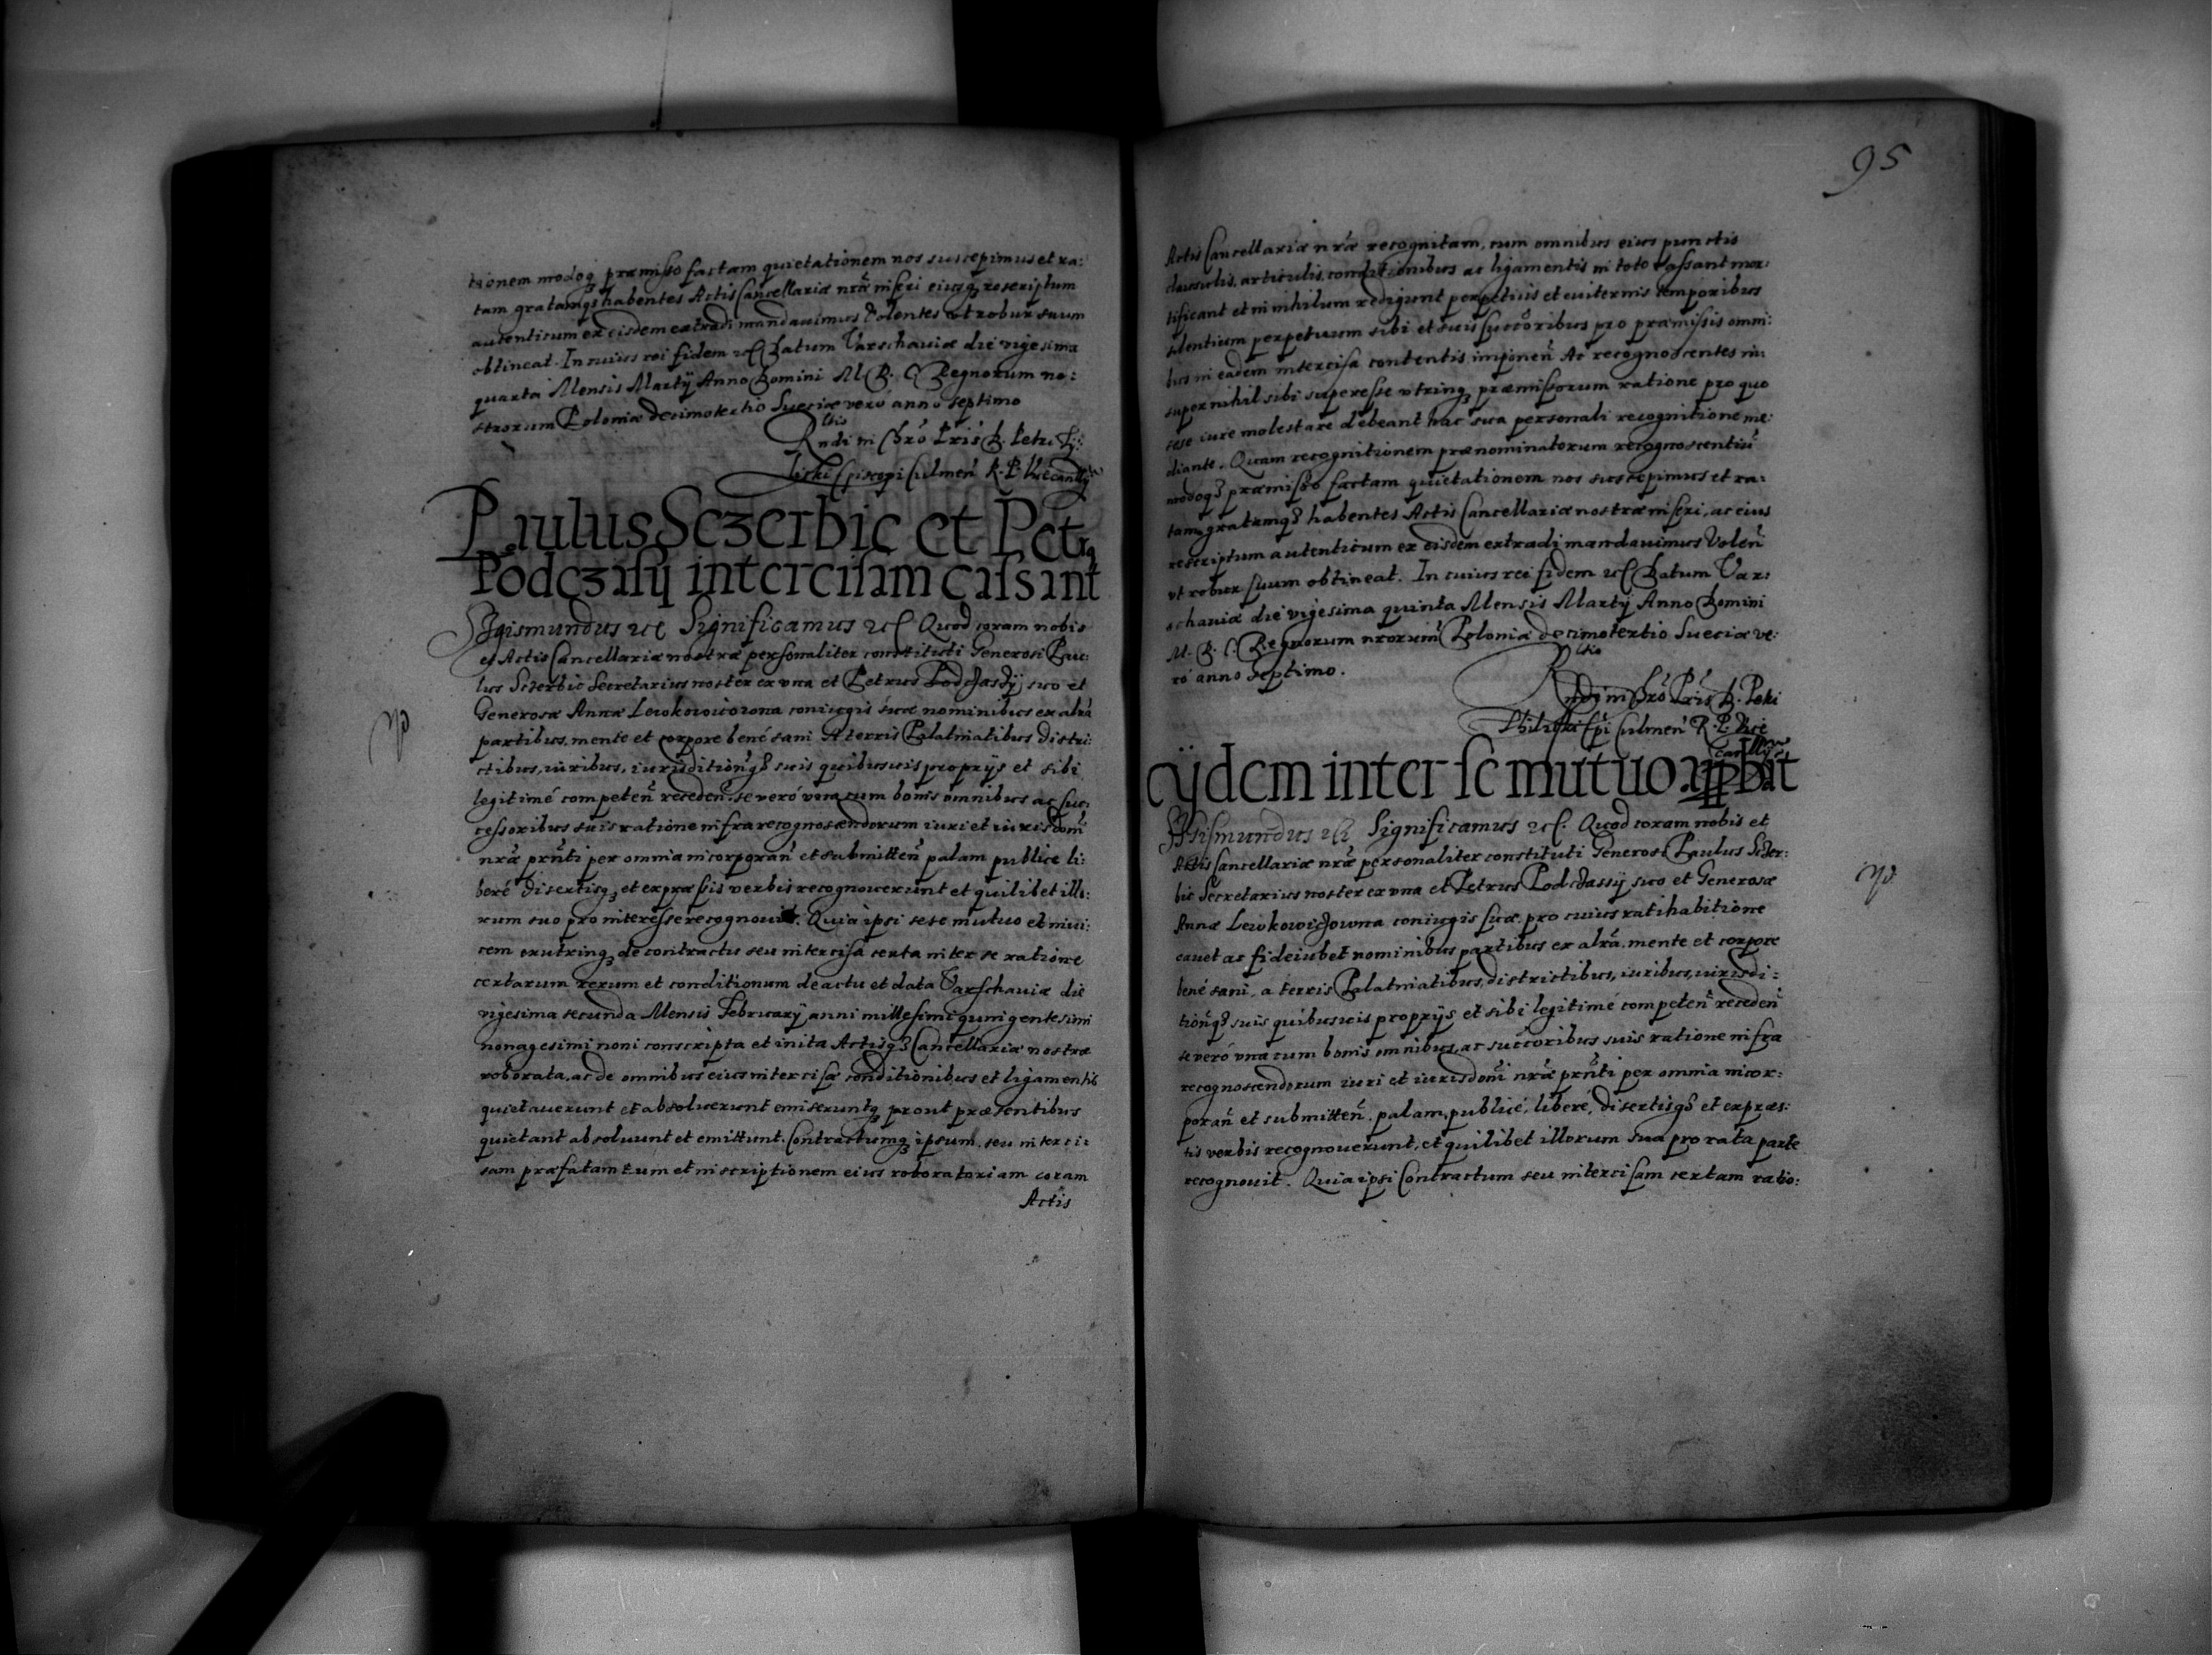 tionem modoq₃ præmisso factam quietationem nos suscepimus et ra:
tam gratamq₃ habentes Actis Cancellariæ nrã inseri eiusq₃ rescriptum
autenticum ex eisdem extradi mandauimus Volentes vt robur suum
obtineat. In cuius rei fidem etc Datum Varschauiæ die vigesima
quarta Mensis Martÿ Anno Domini M. D. C Regnorum no:
strorum Poloniæ decimotertio Sueciæ veró anno septimo
Rndi in Chró Pris D. Petri
Episcopi Culmeñ R. P. Vicecancllÿ
Paulus Sczerbic et Petrq
Podczasÿ intercisam cassant
Sigismundus etc Significamus etc Quod coram nobis
et Actis Cancellariæ nostræ personaliter constituti Generosi Pau:
lus Sczerbic Secretarius noster ex vna et Petrus Podczasÿ suo et
Generosæ Annæ Lewkowiczowna coniugis suæ nominibus ex alrã
partibus, mente et corpore bené sani A terris Palatinatibus distri:
ctibus, iuribus, iurisditioñq₃ suis quibusuis proprÿs et sibi
legitimé competeñ recedeñ, se veró vna cum bonis omnibus ac suc:
cessoribus suis ratione infra recognoscendorum iuri et iurisdoñi
nrã prñti per omnia incorporañ et submitteñ palam publicé li:
beré disertisq₃ et expræssis verbis recognouerunt et quilibet illo:
rum suo pro interesse recognouit. Quia ipsi sese mutuo et inui:
cem ex utrinq₃ de contractu seu intercisa certa inter se ratione
certarum rerum et conditionum de actu et data Varschauiæ die
vigesima secunda Mensis Februarÿ anni millesimi quingentesimi
nonagesimi noni conscripta et inita Actisq₃ Cancellariæ nostræ
roborata, ac de omnibus eius intercisæ conditionibus et ligamentis
quietauerunt et absoluerunt emiseruntq₃ prout præsentibus
quietant absoluunt et emittunt. Contractumq₃ ipsum, seu interci:
sam præfatam tum et inscriptionem eius roboratoriam coram
Actis
95
Actis Cancellariæ nrã recognitam, cum omnibus eius punctis
clausulis, articulis, conditionibus ac ligamentis in toto cassant mor:
tificant et in nihilum redigunt perpetuis et euiternis temporibus
silentium perpetuum sibi et suis succoribus pro præmissis omni:
bus in eadem intercisa contentis imponeñ Ac recognoscentes in:
super nihil sibi superesse vtrinq₃ præmissorum ratione pro quo
sese iure molestare debeant hac sua personali recognitione me:
diante. Quam recognitionem prænominatorum recognoscentiũ
modoq₃ præmisso factam quietationem nos suscepimus et ra:
tam gratamq₃ habentes Actis Cancellariæ nostræ inseri, ac eius
rescriptum autenticum ex eisdem extradi mandauimus Voleñ
vt robur suum obtineat. In cuius rei fidem etc Datum Var:
schauiæ die vigesima quinta Mensis Martÿ Anno Domini
M. D. C. Regnorum nrorum Poloniæ decimotertio Sueciæ ve:
ró anno Septimo.
Rndi in Chró Pris D. Petri
Tilitzki Epi Culmeñ R. P. Vice
cancllÿ
Eÿdem inter se mutuo
Sigismundus etc Significamus etc. Quod coram nobis et
Actis Cancellariæ nrã personaliter constituti Generosi Paulus Sczer:
bic Secretarius noster ex vna et Petrus Podczassÿ suo et Generosæ
Annæ Lewkowiczowna coniugis suæ, pro cuius ratihabitione
cauet ac fideiubet nominibus partibus ex alrã, mente et corpore
bené sani, a terris Palatinatibus, districtibus, iuribus, iurisdi:
tioñq₃ suis quibusuis proprÿs et sibi legitimé competeñ recedeñ
se veró vna cum bonis omnibus, ac succoribus suis ratione infra
recognoscendorum iuri et iurisdoñi nrã prñti per omnia incor:
porañ et submitteñ. palam, publicé, libere, disertisq₃ et expræs:
sis verbis recognouerunt, et quilibet illorum sua pro rata parte
recognouit. Quia ipsi Contractum seu intercisam certam ratio: